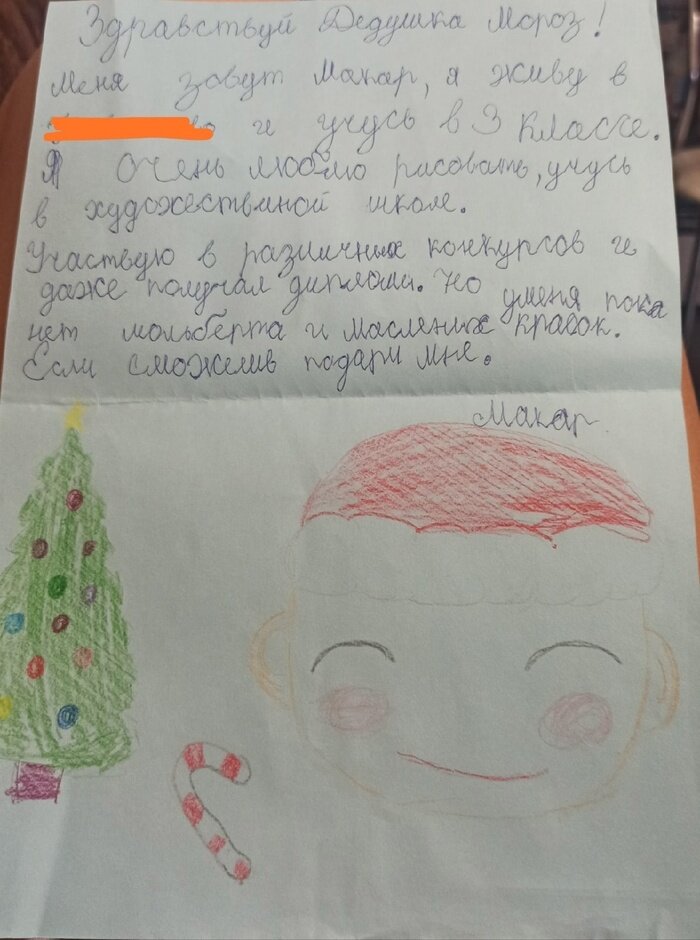 Здравствуй Дедушка Мороз!
Меня зовут Макар, я живу в
и учусь в 3 классе.
Я очень люблю рисовать, учусь
в художествиной школе.
Участвую в различных конкурсов и
даже получал дипломи. Но уменя пока
нет мольберта и масленых красок.
Если сможешь подари мне.
Макар